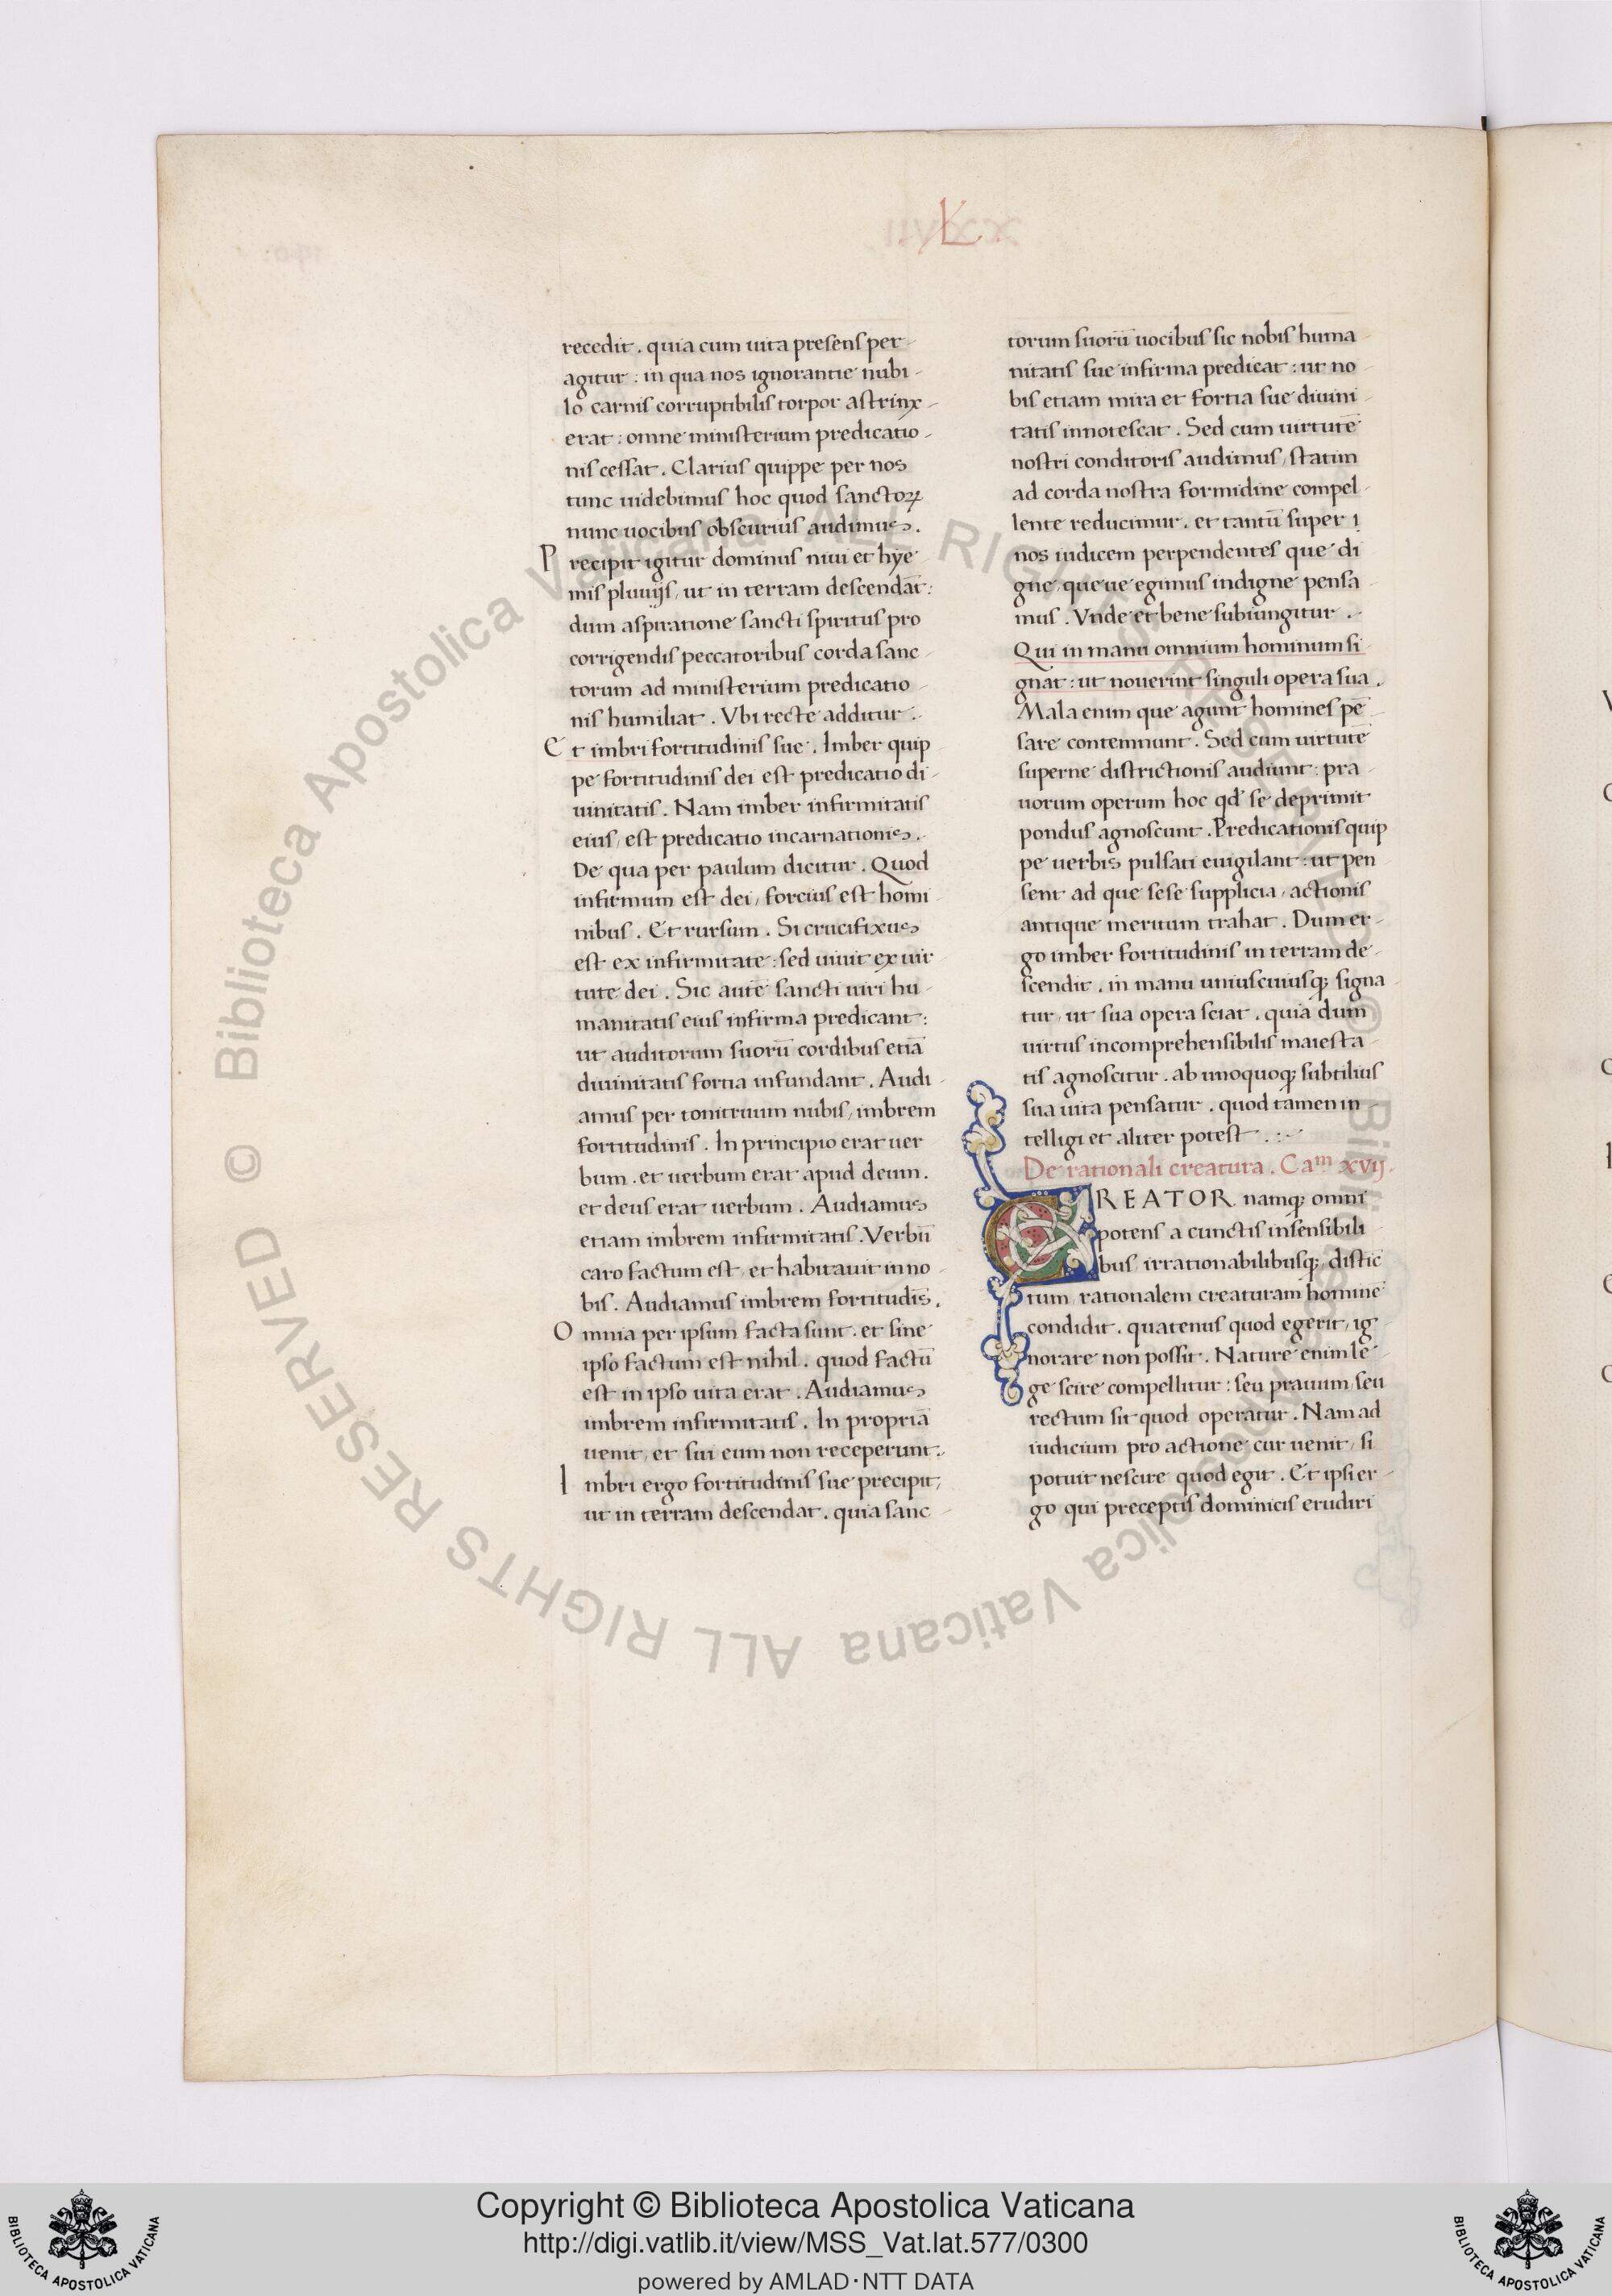 L
recedit . quia cum uita presens per-
agitur : in qua nos ignorantie nubi-
lo carnis corruptibilis torpor astrinx-
erat : omne ministerium predicatio-
nis cessat . Clarius quippe per nos
tunc uidebimus hoc quod sanctoꝝ
nunc uocibus obscurius audimus .
Precipit igitur dominus niui et hye-
mis pluuijs, ut in terram descendāt :
dum aspiratione sancti spiritus pro
corrigendis peccatoribus corda sanc-
torum ad ministerium predicatio-
nis humiliat . Vbi recte additur .
Et imbri fortitudinis sue . Imber quip-
pe fortitudinis dei est predicatio di-
uinitatis . Nam imber infirmitatis
eius, est predicatio incarnationis .
De qua per paulum dicitur . Quod
infirmum est dei, forcius est homi-
nibus . Et rursum . Si crucifixus
est ex infirmitate : sed uiuit ex uir-
tute dei . Sic autē sancti uiri hu-
manitatis eius infirma predicant :
ut auditorum suorū cordibus etiā
diuinitatis fortia infundant . Audi-
amus per tonitruum nubis, imbrem
fortitudinis . In principio erat uer-
bum . et uerbum erat apud deum .
et deus erat uerbum . Audiamus
etiam imbrem infirmitatis . Verbū
caro factum est, et habitauit in no-
bis . Audiamus imbrem fortitudīs .
Omnia per ipsum facta sunt . et sine
ipso factum est nihil . quod factū
est in ipso uita erat . Audiamus
imbrem infirmitatis . In propriā
uenit, et sui eum non receperunt .
Imbri ergo fortitudinis sue precipit,
ut in terram descendat . quia sanc-
torum suorū uocibus sic nobis huma-
nitatis sue infirma predicat : ut no-
bis etiam mira et fortia sue diuini-
tatis innotescat . Sed cum uirtutē
nostri conditoris audimus, statim
ad corda nostra formidine compel-
lente reducimur . et tantū super i
nos iudicem perpendentes que di-
gne, queue egimus indigne pensa-
mus . Vnde et bene subiungitur .
Qui in manu omnium hominum si-
gnat : ut nouerint singuli opera sua .
Mala enim que agunt homines pē-
sare contemnunt . Sed cum uirtutē
superne districtionis audiunt : pra-
uorum operum hoc qd' se deprimit
pondus agnoscunt . Predicationis quip
pe uerbis pulsati euigilant : ut pen-
sent ad que sese supplicia, actionis
antique meritum trahat . Dum er-
go imber fortitudinis in terram de-
scendit . in manu uniuscuiusqꝫ signa-
tur, ut sua opera sciat . quia dum
uirtus incomprehensibilis maiesta-
tis agnoscitur . ab unoquoqꝫ subtilius
sua uita pensatur . quod tamen in-
telligi et aliter potest . :~
De rationali creatura . Caᵐ xvij .
CREATOR namqꝫ omni
potens a cunctis insensibili-
bus, irrationabilibusqꝫ, distīc
tum, rationalem creaturam hominē
condidit . quatenus quod egerit, ig-
norare non possit . Nature enim le-
ge scire compellitur : seu prauum, seu
rectum sit quod operatur . Nam ad
iudicium pro actione cur uenit, si
potuit nescire quod egit . Et ipsi er-
go qui preceptis dominicis erudiri
© Biblioteca Apostolica Vaticana ALL RIGHTS RESERVED © Biblioteca Apostolica Vaticana ALL RIGHTS RESERVED
BIBLIOTECA APOSTOLICA VATICANA
Copyright © Biblioteca Apostolica Vaticana
http://digi.vatlib.it/view/MSS_Vat.lat.577/0300
powered by AMLAD·NTT DATA
BIBLIOTECA APOSTOLICA VATICANA